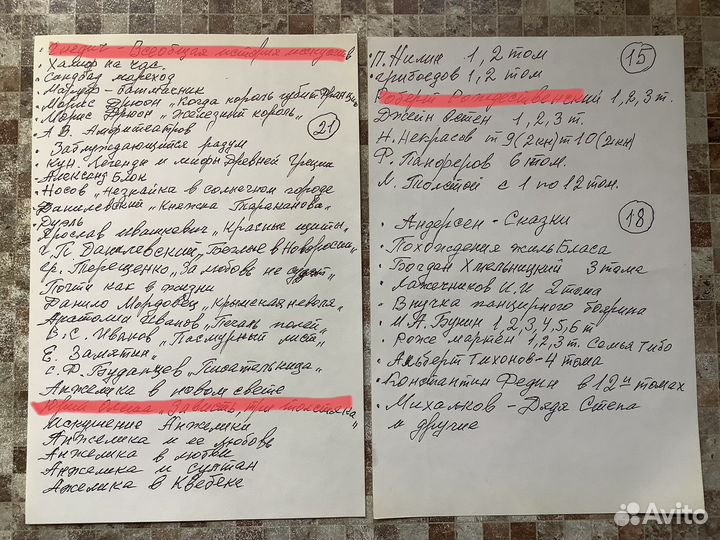 Гнедич - Всеобщая история искусств
· Халиф на час.
· Синдбад мореход
· Маруф - башмачник
· Морис Дрюон „Когда король губит Францию"
· Морис Дрюон „Железный король"
· А. В. Амфитеатров
21
Заблуждающийся разум
· Кун. Легенды и мифы Древней Греции
· Александр Блок
· Носов „Незнайка в солнечном городе
· Данилевский „Княжна Тараканова"
· Дуэль
· Ярослав Ивашкевич „Красные щиты"
· Г. П. Данилевский „Беглые в Новороссии"
· ср. Терещенко „За любовь не судят"
· Почти как в жизни
· Данило Мордовец „Крымская неволя"
· Анатолий Иванов „Печаль полей"
· В. С. Иванов „Пасмурный лист"
· Е. Замятин"
· С. Ф. Буданцев „Писательница"
Анжелика в новом свете
Юрий Олеша „Зависть, три толстяка"
Искушение Анжелики
Анжелика и ее любовь
Анжелика в любви
Анжелика и султан
Анжелика в Квебеке
· П. Нилин 1, 2 том
15
· Грибоедов 1, 2 том
Роберт Рождественский 1, 2, 3 т.
Джейн Остен 1, 2, 3 т.
Н. Некрасов т 9 (2 кн) т 10 (2 кн)
Ф. Панферов 6 том.
Л. Толстой с 1 по 12 том.
18
· Андерсен - Сказки
· Похождения Жиль Бласа
· Богдан Хмельницкий 3 тома
· Лажечников И. И 2 тома
· Внучка панцирного боярина
· И А. Бунин 1, 2, 3, 4, 5, 6 т
· Роже Мартен 1, 2, 3 т. Семья Тибо
· Альберт Тихонов - 4 тома
· Константин Федин в 12 и томах
· Михалков - Дядя Степа
и другие
Avito